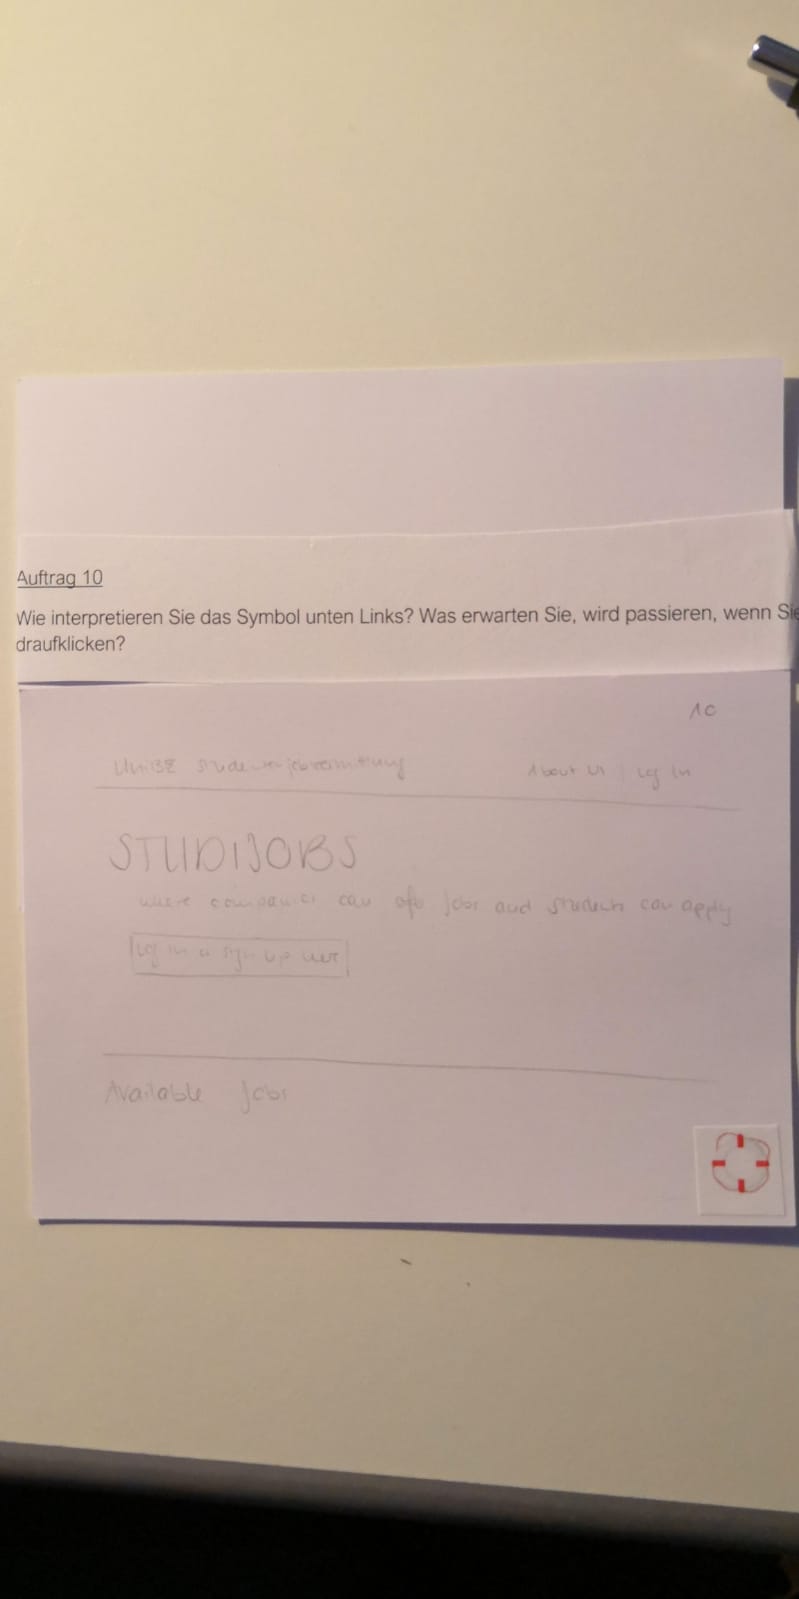 Auftrag 10
Wie interpretieren Sie das Symbol unten Links? Was erwarten Sie, wird passieren, wenn Sie
draufklicken?
10
UniBE Studentenjobvermittlung About us | Log In
STUDIJOBS
where companies can offer jobs and students can apply
Log in or sign up here
Available Jobs